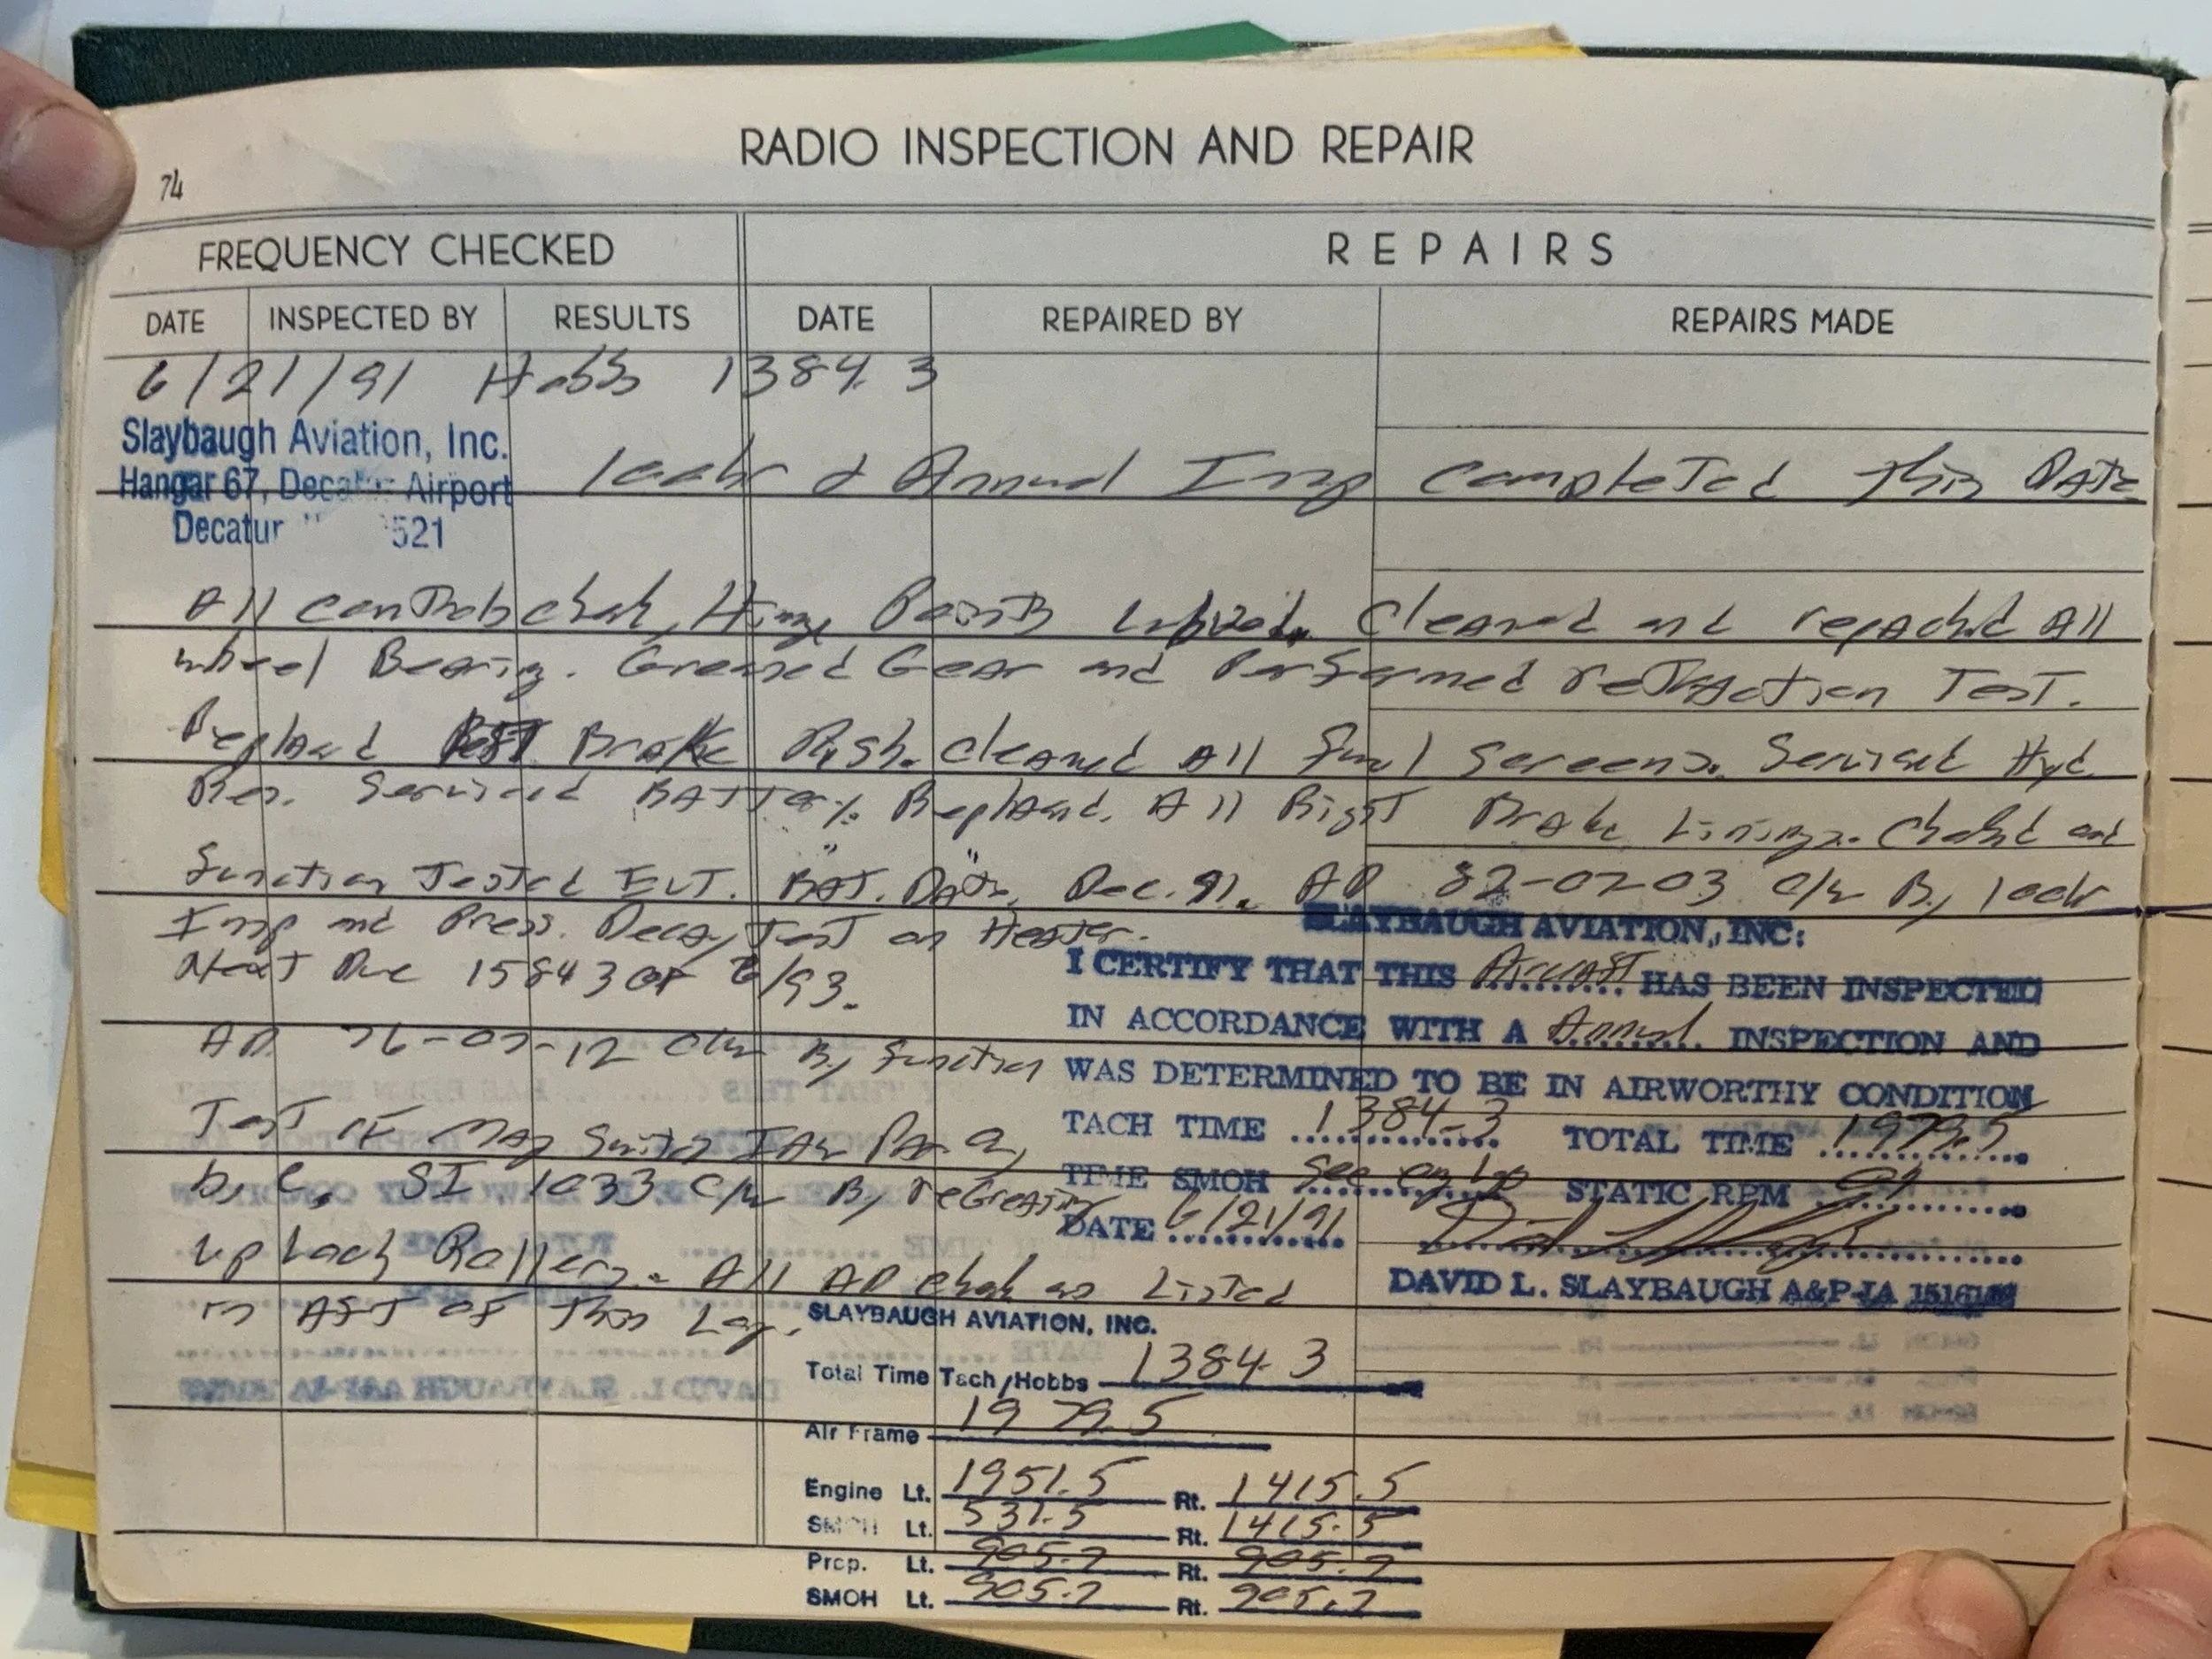 RADIO INSPECTION AND REPAIR
74
FREQUENCY CHECKED
REPAIRS
DATE INSPECTED BY RESULTS DATE REPAIRED BY REPAIRS MADE
6/21/91 Hobbs 1384.3
Slaybaugh Aviation, Inc.
Hangar 67, Decatur Airport
Decatur 521
100hr & Annual Insp completed This Date
All controls chek, Hinge Points Lubized. Cleaned and repacked All
wheel Bearing. Greased Gear and Performed retraction Test.
Replaced Brake Cleaned All fuel screens. Serviced Hyd
Res. Serviced Battery. Replaced All Right Brake Linings. Checked and
function Tested ELT. BAT. Date Dec. 91. AD 82-07-03 C/W By 100hr
Insp and Press. Decay Test on Heater.
Next Due 1584.3 or 6/93.
AD 76-07-12 C/W By function
Test of Mag Switch IAW Par. a,
b, c, SI 1033 C/W By reGreasing
up Lock Rollers. All AD chek as Listed
in AFT of This Log.
SLAYBAUGH AVIATION, INC:
I CERTIFY THAT THIS Aircraft HAS BEEN INSPECTED
IN ACCORDANCE WITH A Annual INSPECTION AND
WAS DETERMINED TO BE IN AIRWORTHY CONDITION
TACH TIME 1384.3 TOTAL TIME 1979.5
TIME SMOH See eng log STATIC RPM
DATE 6/21/91
DAVID L. SLAYBAUGH A&P-IA
SLAYBAUGH AVIATION, INC.
Total Time Tach/Hobbs 1384.3
Air Frame 1979.5
Engine Lt. 1951.5 Rt. 1415.5
SMOH Lt. 531.5 Rt. 1415.5
Prop. Lt. 905.7 Rt. 905.7
SMOH Lt. 905.7 Rt. 905.7